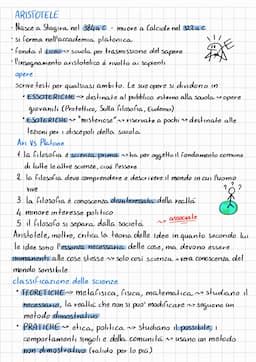 ARISTOTELE
• Nasce a Stagira nel 384 a.C. - muore a Calcide nel 322 a.C.
• si forma nell'accademia platonica
• Fonda il Liceo → scuola per trasmissione del sapere
• l'insegnamento aristotelico è rivolto ai sapienti
opere
scrive testi per qualsiasi ambito. Le sue opere si dividono in
• ESSOTERICHE → destinate al pubblico esterno alla scuola → opere
giovanili (Protettico, Sulla filosofia, Eudemo)
• ESOTERICHE → "misteriose" → riservate a pochi → destinate alle
lezioni per i discepoli della scuola
Ari Vs Platone
1. la filosofia è scienza prima → ha per oggetto il fondamento comune
di tutte le altre scienze, cioè l'essere
2. la filosofia deve comprendere e descrivere il mondo in cui l'uomo
vive
3. la filosofia è conoscenza disinteressata della realtà
4. minore interesse politico
5. il filosofo si separa dalla società → asociale
Aristotele, inoltre, critica la teoria delle idee in quanto secondo lui
le idee sono l'essenza necessaria delle cose, ma devono essere
immanenti alle cose stesse → solo così scienza = vera conoscenza del
mondo sensibile.
classificazione delle scienze
• TEORETICHE → metafisica, fisica, matematica → studiano il
necessario, la realtà che non si può modificare → seguono un
metodo dimostrativo
• PRATICHE → etica, politica → studiano il possibile, i
comportamenti singoli e della comunità → usano un metodo
non dimostrativo (valido per lo più)